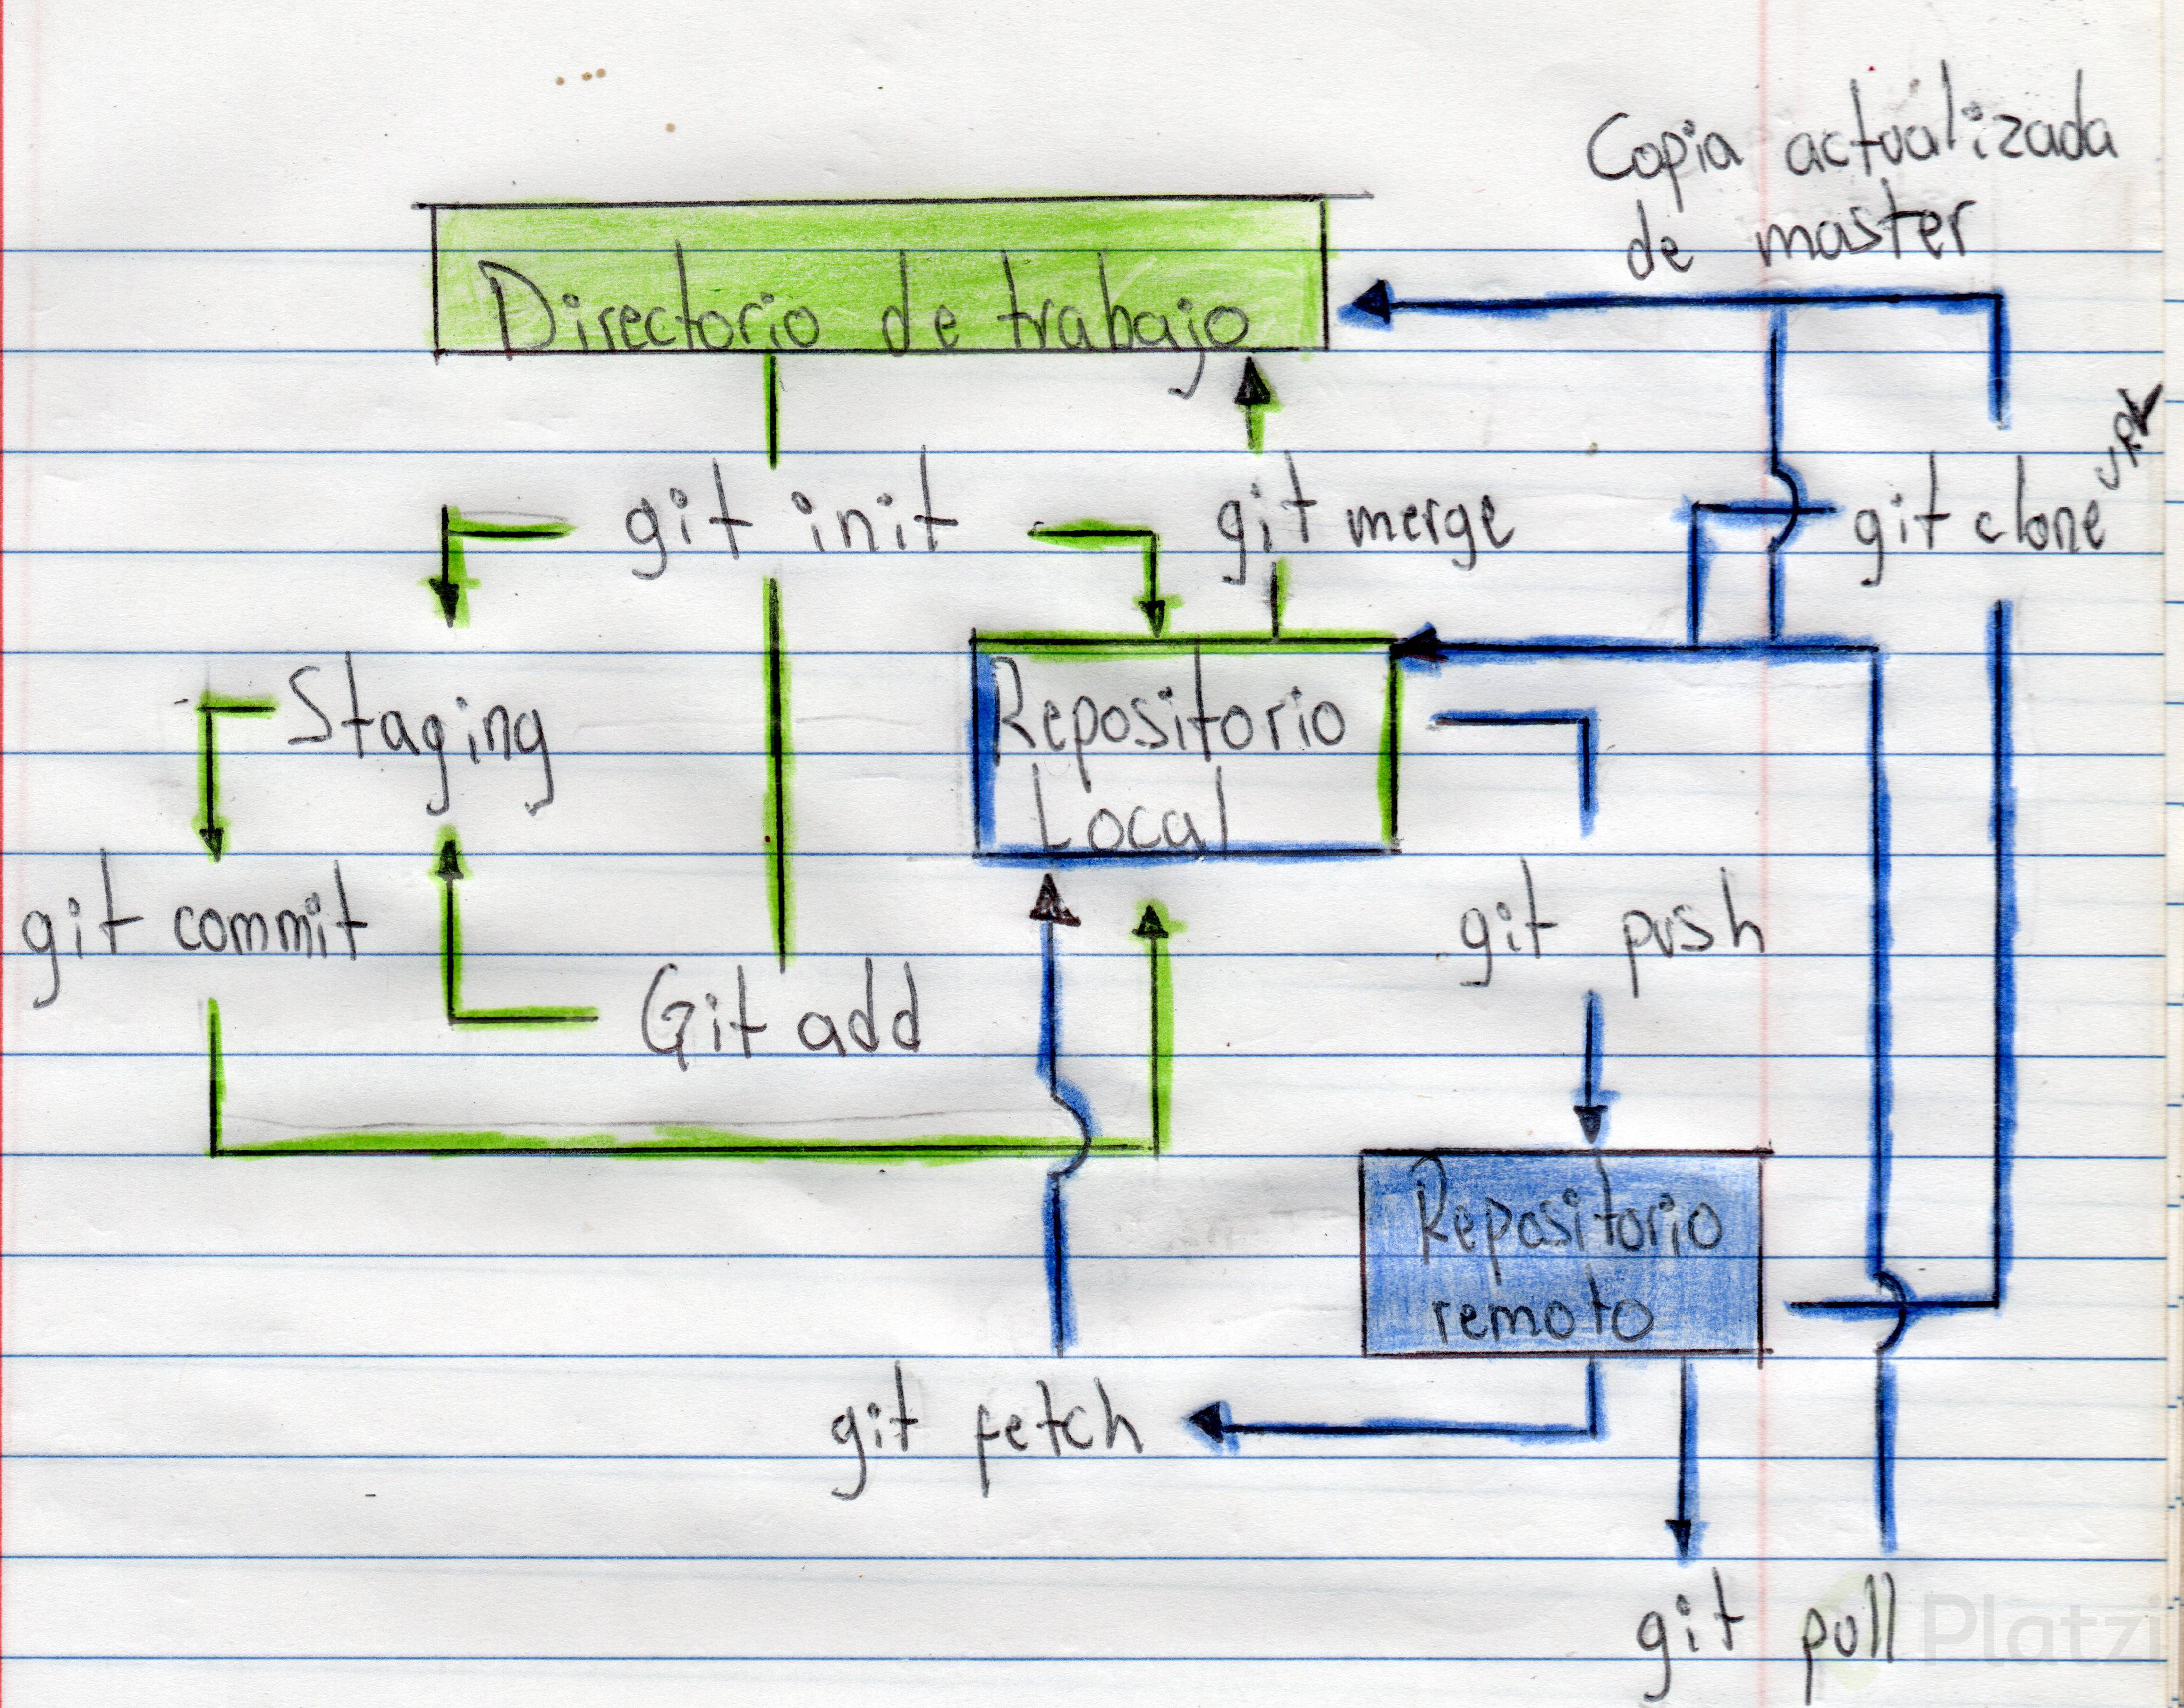 Copia actualizada
de master
Directorio de trabajo
git init
git merge
git clone URL
Staging
Repositorio
Local
git commit
git push
Git add
Repositorio
remoto
git fetch
git pull
Platzi